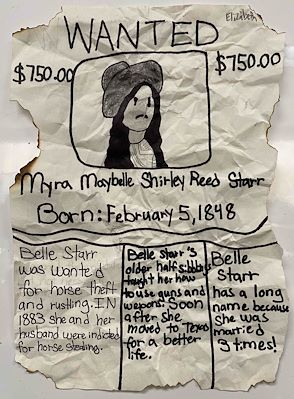 Elizabeth
WANTED
$750.00 $750.00
Myra Maybelle Shirley Reed Starr
Born: February 5, 1848
Belle Starr
was wanted
for horse theft
and rustling. IN
1883 she and her
husband were indicted
for horse stealing.
Belle starr's
older half
taught her how
to use guns and
weapons. Soon
after she
moved to Texas
for a better
life.
Belle
Starr
has a long
name because
she was
married
3 times!